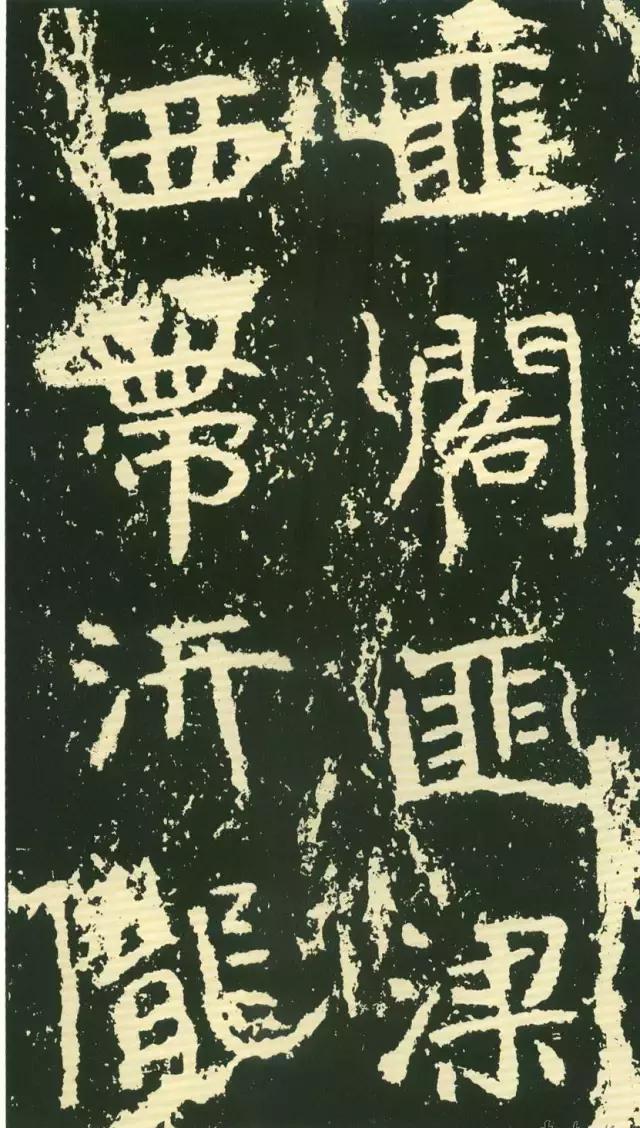 匪閣匪梁
西帶汧隴